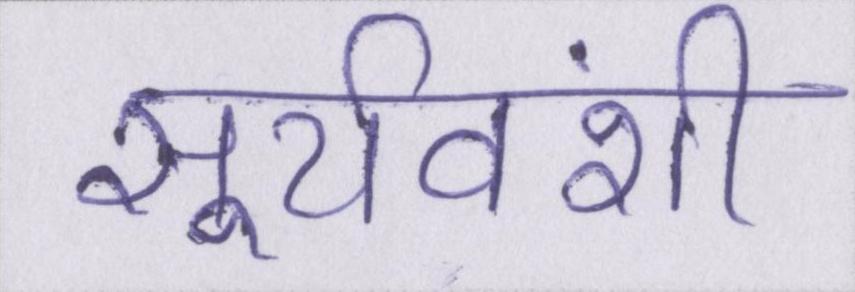 सूर्यवंशी